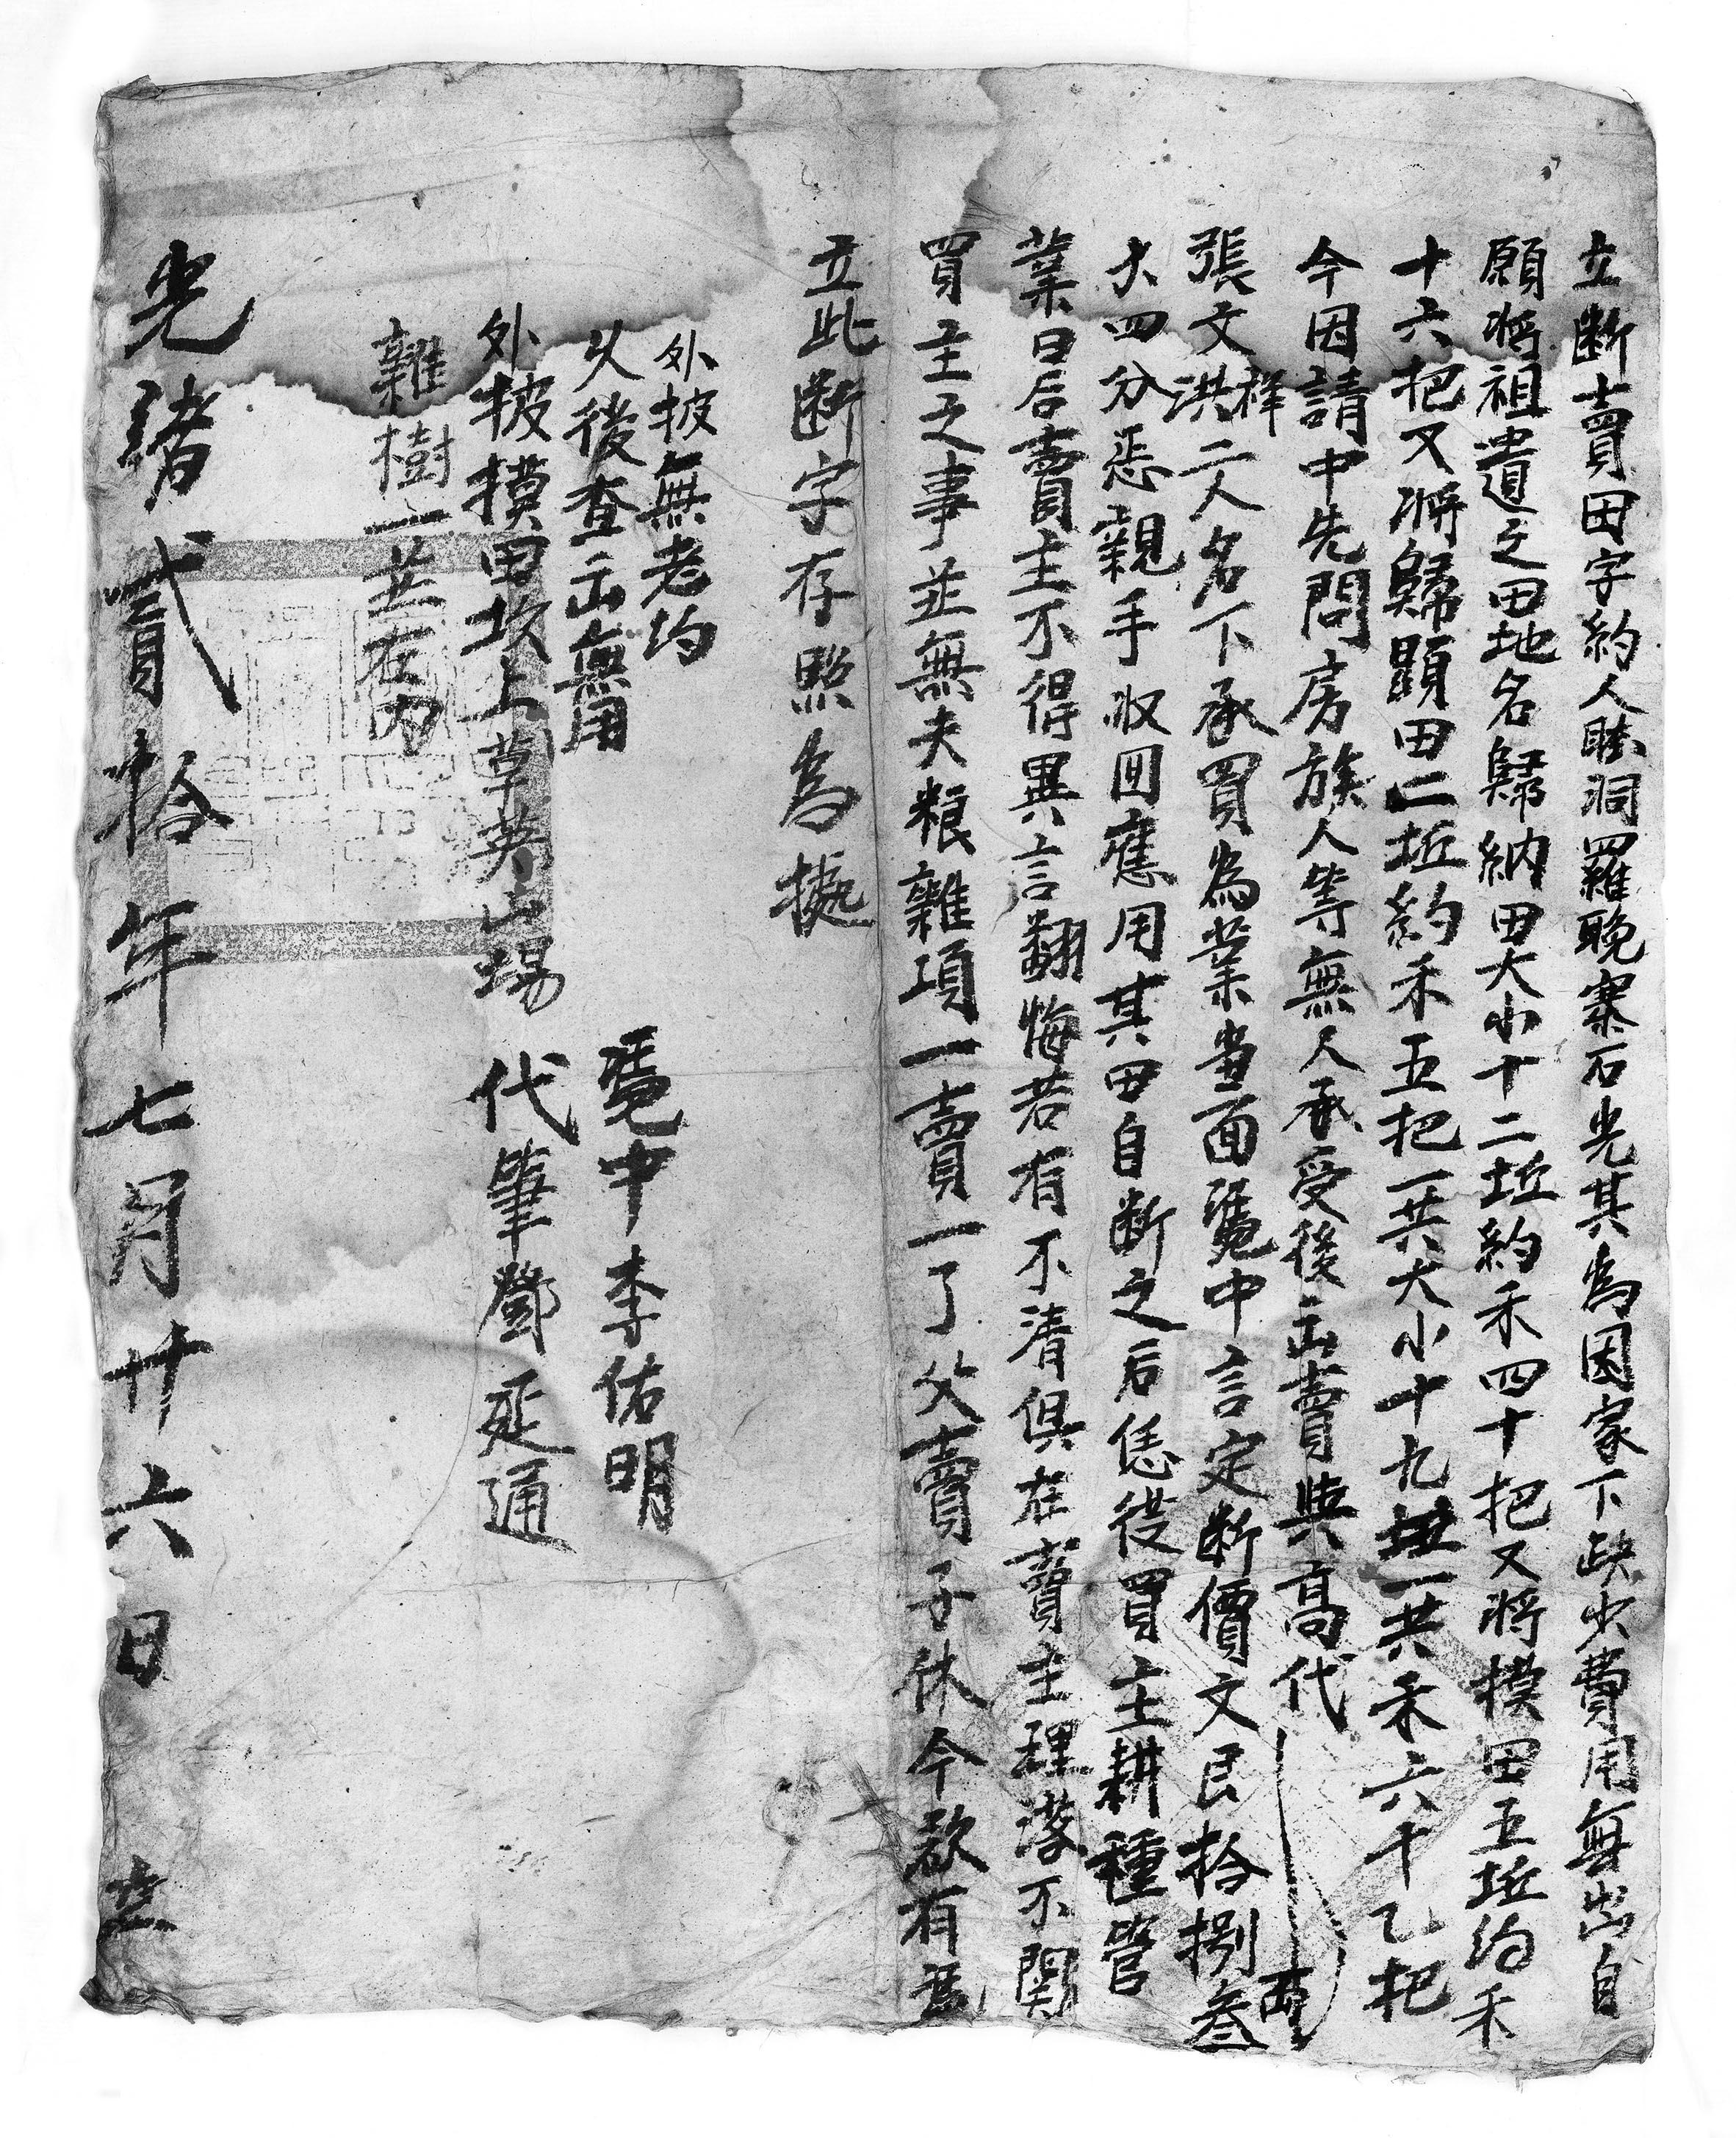 立断賣田字約人賍洞羅晚寨石光其為因家下缺少費用無出自
願將祖遺之田地名歸納田大小十二坵約禾四十把又將模田五坵約禾
十六把又將歸顕田二坵約禾五把一共大小十九坵一共禾六十乙把
今因請中先問房族人等無人承受後出賣與高代
張文祥洪二人名下承買為業當面憑中言定断價文艮拾捌兩叁
大四分悉親手收回應用其田自断之后恁從買主耕種管
業日后賣主不得異言翻悔若有不清俱在賣主理落不関
買主之事並無夫粮雜項一賣一了父賣子休今欲有憑
立此断字存照為據
外披無老約
乆後查出無用
外披模田坎上草英山場
雜樹一並在内
憑中李佑明
代筆鄧延通
光緒貳拾年七月廿六日立